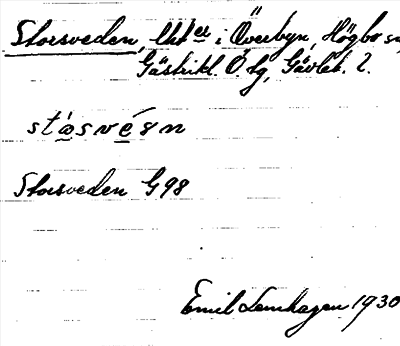 Storsveden, lht er i Överbyn, Högbo sn,
Gästrikl. Ö. tg, Gävleb. l.
stɷ́svésn
Storsveden G98
Emil Lemhagen 1930